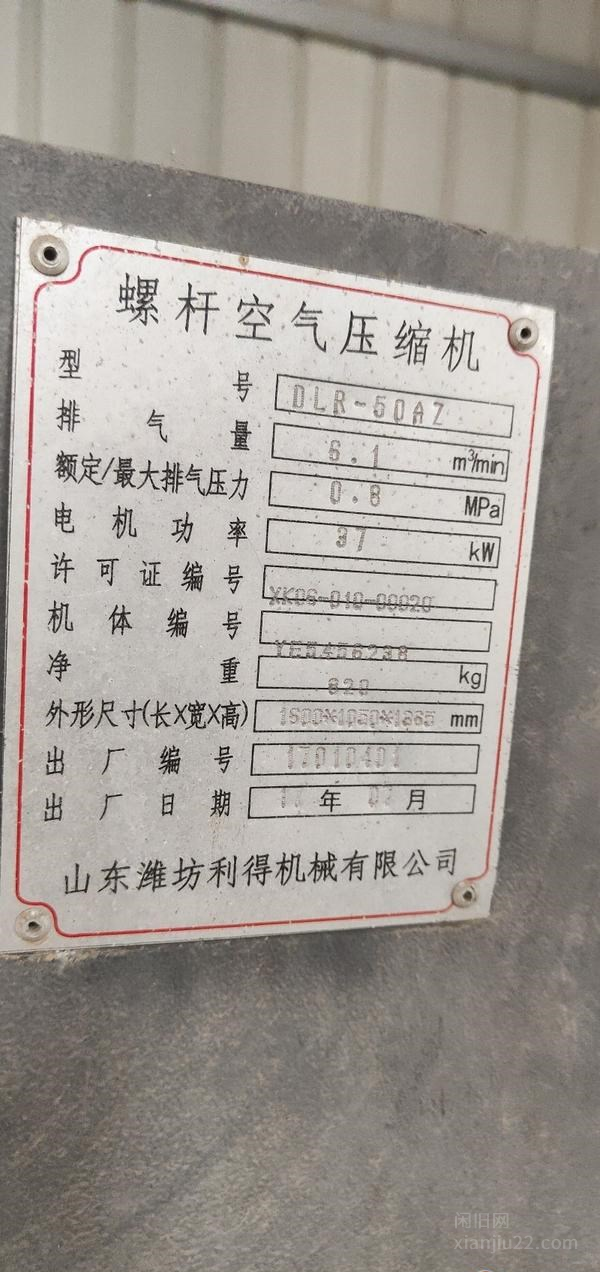 螺杆空气压缩机
型号 DLR-50AZ
排气量 6.1 m³/min
额定/最大排气压力 0.8 MPa
电机功率 37 kW
许可证编号 XK06-010-00020
机体编号 YE5456238
净重 820 kg
外形尺寸(长X宽X高) 1500*1050*1365 mm
出厂编号 17010401
出厂日期 17 年 02 月
山东潍坊利得机械有限公司
闲旧网
xianjiu22.com